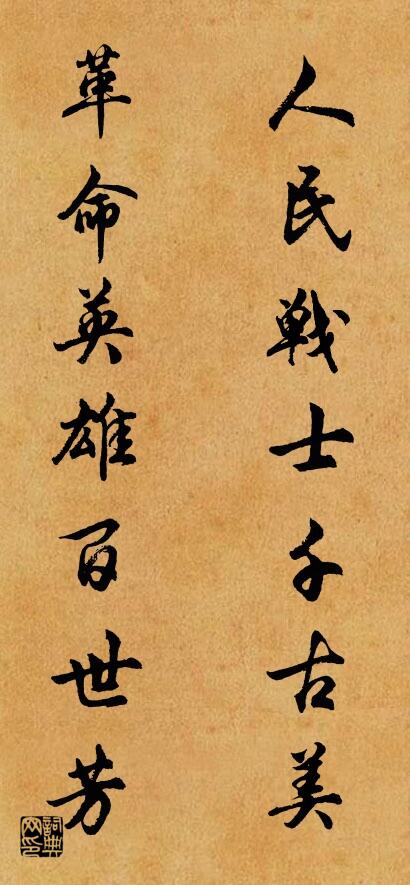 人民戦士千古美
革命英雄百世芳
詞典网印